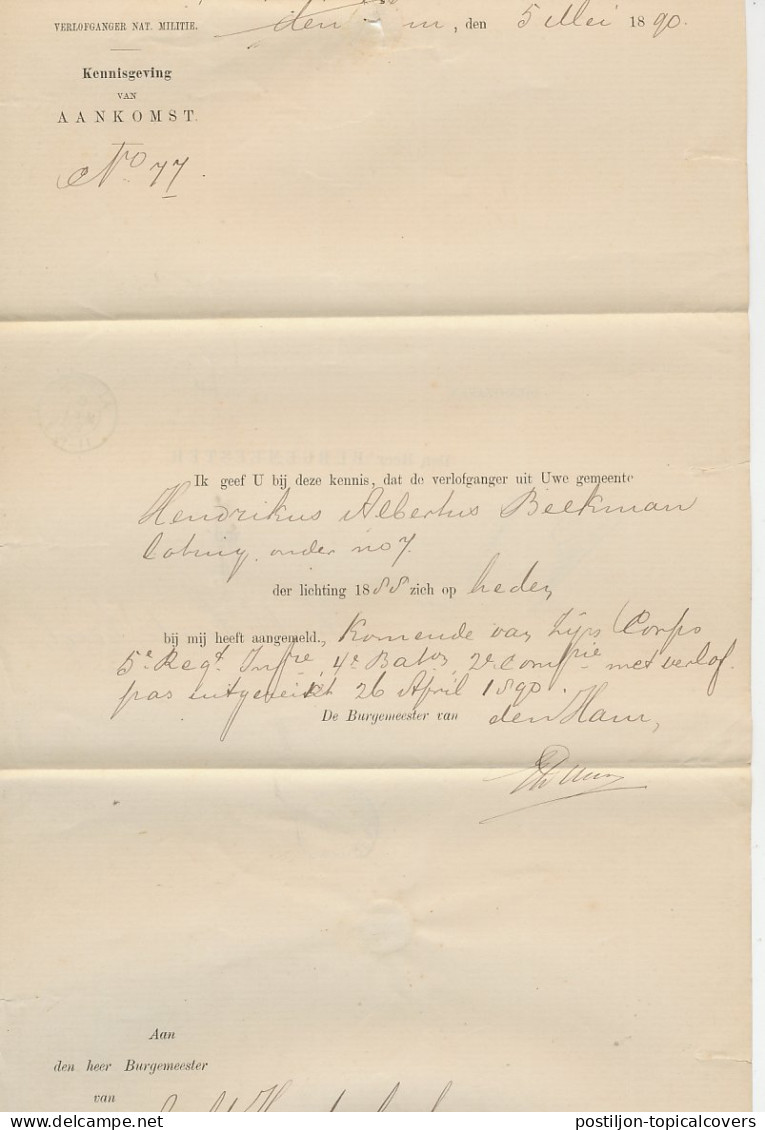 VERLOFGANGER NAT. MILITIE.
den Ham, den 5 Mei 1890.
Kennisgeving
VAN
AANKOMST.
No 77.
Ik geef U bij deze kennis, dat de verlofganger uit Uwe gemeente
Hendrikus Albertus Beekman
onder no 7.
der lichting 1888 zich op heden
bij mij heeft aangemeld., Komende van zijn Corps
5e Regt. Infie, 4e Baton, 2e Compie met verlof-
pas uitgereikt 26 April 1890.
De Burgemeester van den Ham,
Aan
den heer Burgemeester
van
postiljon-topicalcovers